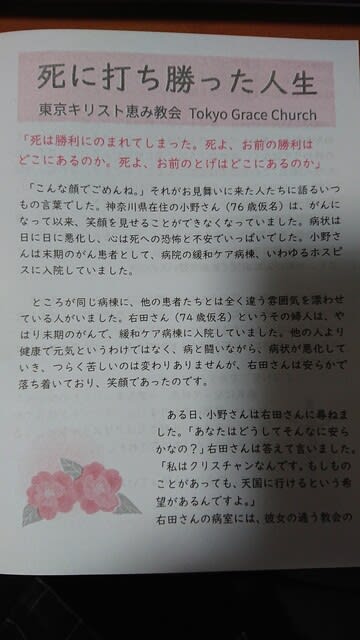 死に打ち勝った人生
東京キリスト恵み教会 Tokyo Grace Church
「死は勝利にのまれてしまった。死よ、お前の勝利は
どこにあるのか。死よ、お前のとげはどこにあるのか」
「こんな顔でごめんね。」それがお見舞いに来た人たちに語るいつ
もの言葉でした。神奈川県在住の小野さん（76歳仮名）は、がんに
なって以来、笑顔を見せることができなくなっていました。病状は
日に日に悪化し、心は死への恐怖と不安でいっぱいでした。小野さ
んは末期のがん患者として、病院の緩和ケア病棟、いわゆるホスピ
スに入院していました。
ところが同じ病棟に、他の患者たちとは全く違う雰囲気を漂わせ
ている人がいました。右田さん（74歳仮名）というその婦人は、や
はり末期のがんで、緩和ケア病棟に入院していました。他の人より
健康で元気というわけではなく、病と闘いながら、病状が悪化して
いき、つらく苦しいのは変わりありませんが、右田さんは安らかで
落ち着いており、笑顔であったのです。
ある日、小野さんは右田さんに尋ねま
した。「あなたはどうしてそんなに安ら
かなの？」右田さんは答えて言いました。
「私はクリスチャンなんです。もしもの
ことがあっても、天国に行けるという希
望があるんですよ。」
右田さんの病室には、彼女の通う教会の